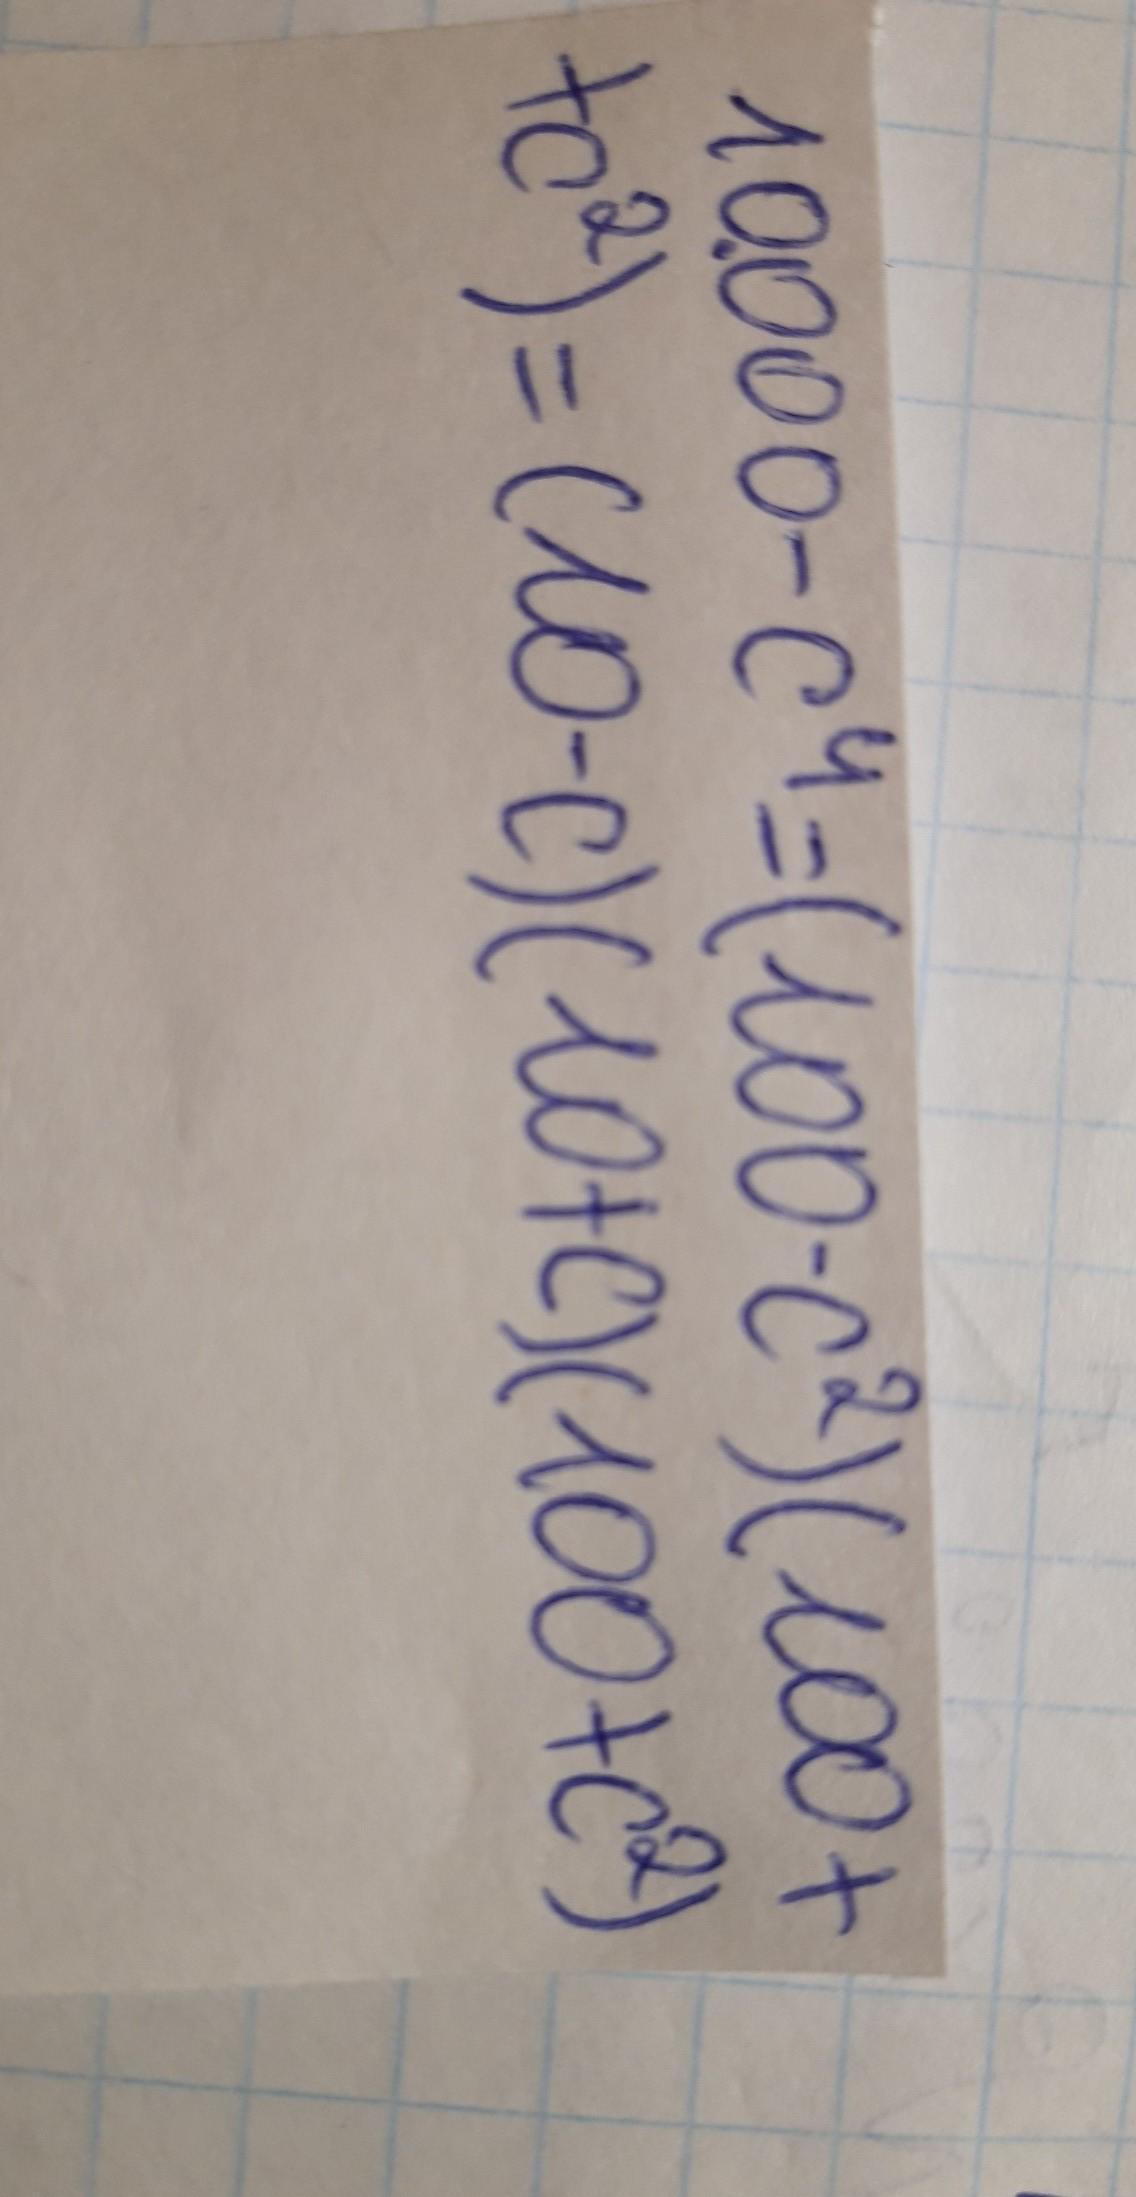 10.000-c⁴=(100-c²)(100+
+c²)=(10-c)(10+c)(100+c²)